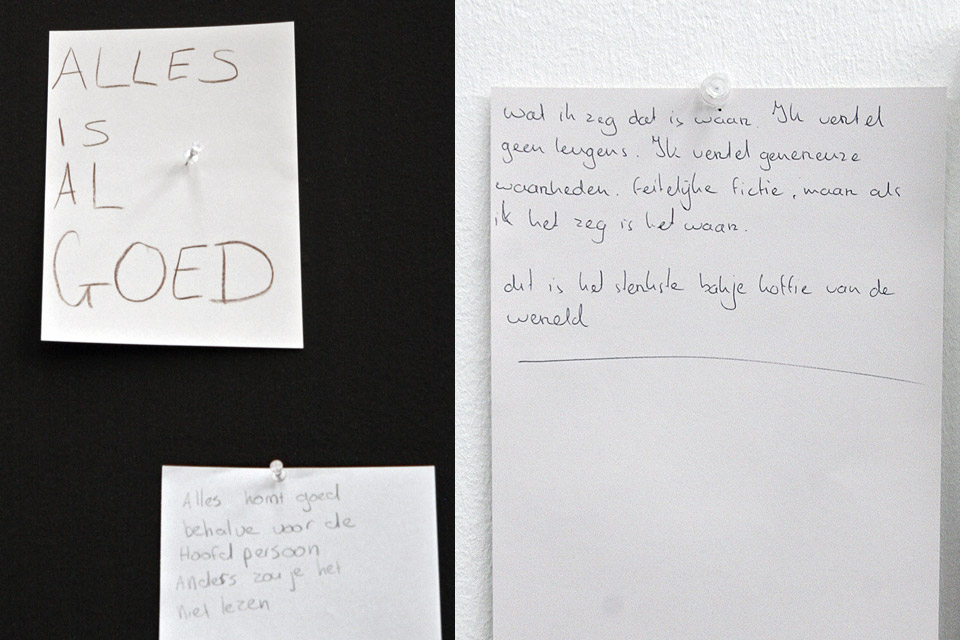 ALLES
IS
AL
GOED
Alles komt goed
behalve voor de
Hoofd persoon
Anders zou je het
niet lezen
wat ik zeg dat is waar. Ik vertel
geen leugens. Ik vertel genereuze
waarheden. Feitelijke fictie, maar als
ik het zeg is het waar.
dit is het sterkste bakje koffie van de
wereld